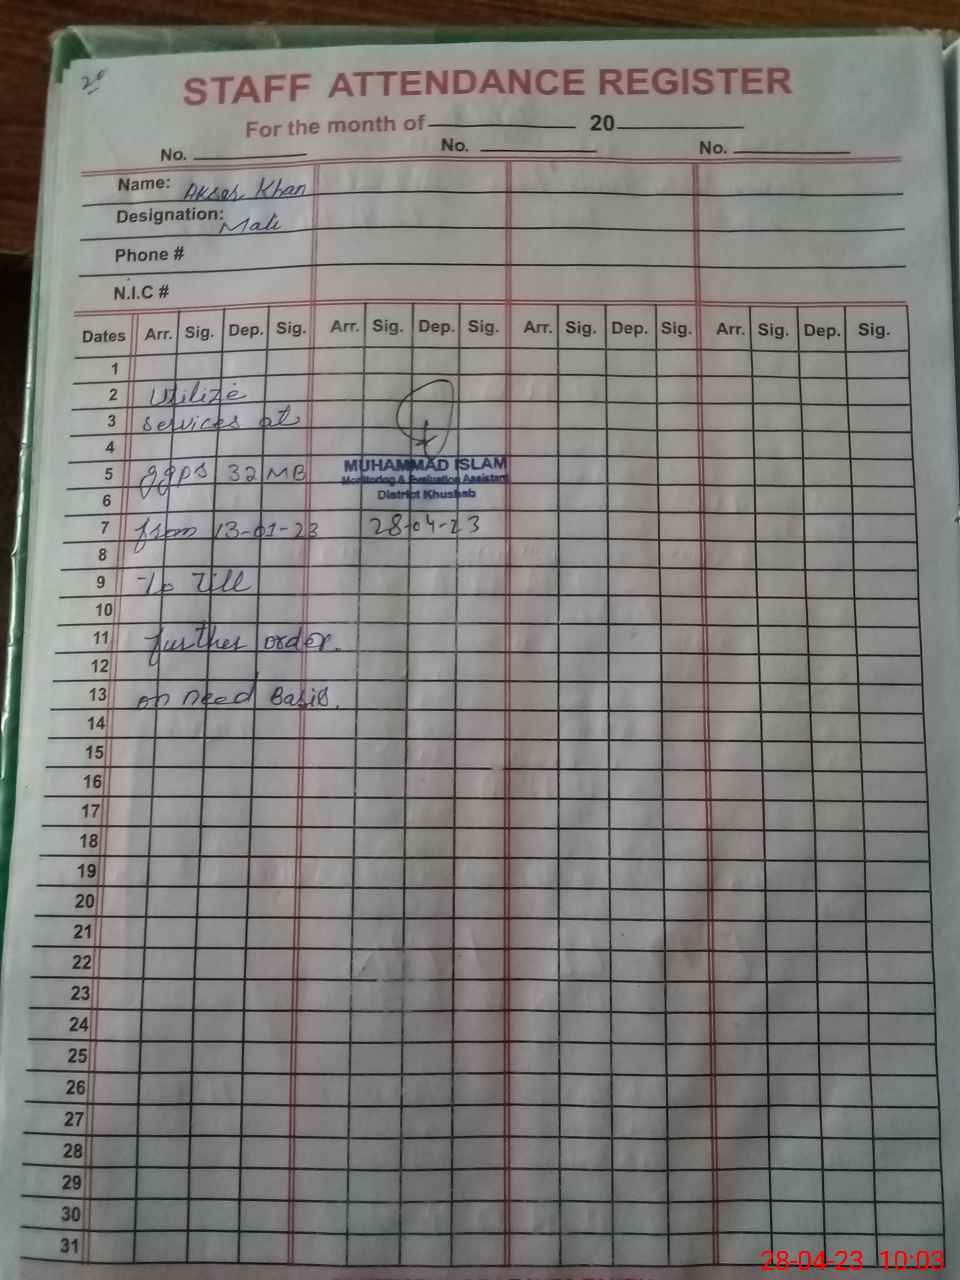 STAFF ATTENDANCE REGISTER
For the month of 20
No. No. No.
Name: Khan
Designation: Mali
Phone #
N.I.C #
Dates Arr. Sig. Dep. Sig. Arr. Sig. Dep. Sig. Arr. Sig. Dep. Sig. Arr. Sig. Dep. Sig.
1
2 Utilize
3 services at
4
5 ggps 32 MB MUHAMMAD ISLAM
Monitoring & Evaluation Assistant
6 District Khushab
7 from 13-01-23 28-04-23
8
9 To Till
10
11 further order.
12
13 on need Basis.
14
15
16
17
18
19
20
21
22
23
24
25
26
27
28
29
30
31
28-04-23 10:03